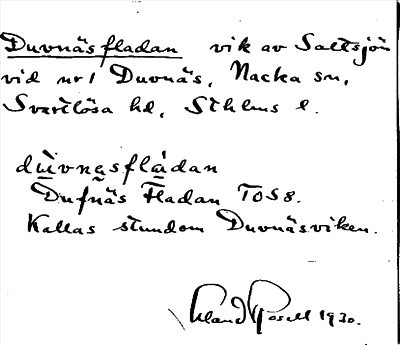 Duvnäsfladan vik av Saltsjön
vid nr 1 Duvnäs, Nacka sn,
Svartlösa hd, Sthlms l.
dùvnasflàdan
Dufnäs Fladan TOS8.
Kallas stundom Duvnäsviken.
Rosell 1930.